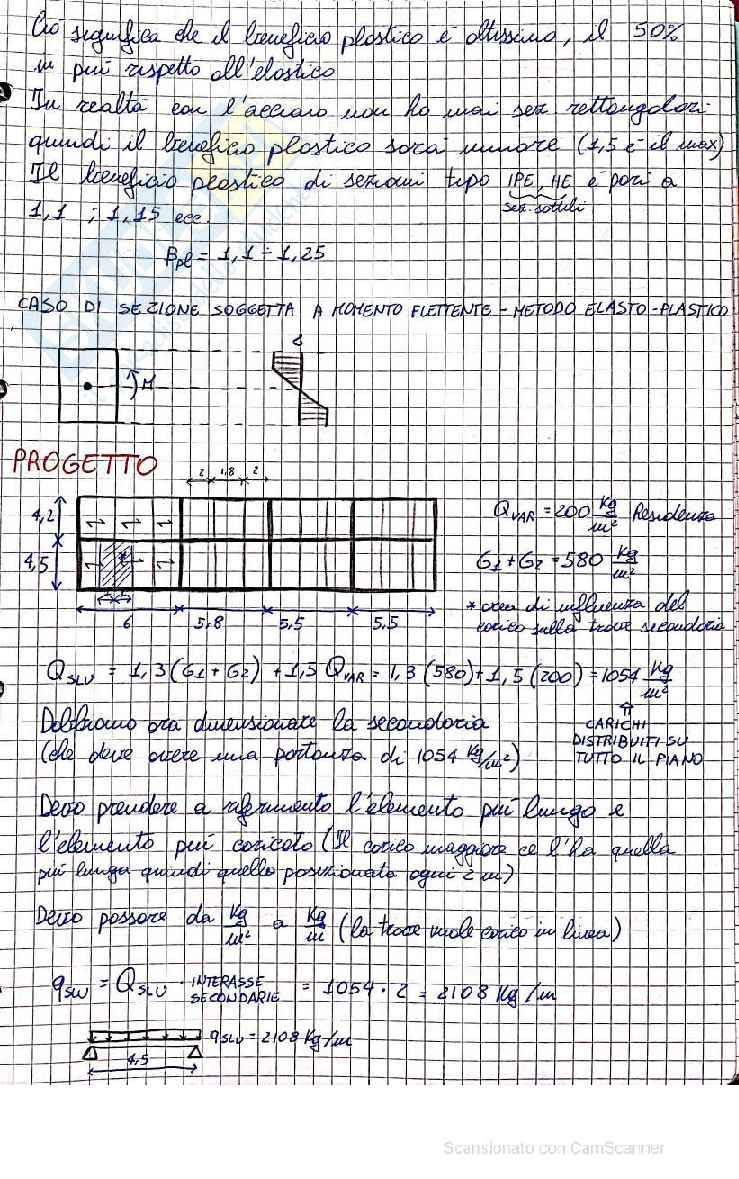 Ciò significa che il beneficio plastico è altissimo, il 50%
in più rispetto all'elastico
In realtà con l'acciaio non ho mai sez rettangolari
quindi il beneficio plastico sarà minore (1,5 è il max)
Il beneficio plastico di sezioni tipo IPE, HE è pari a
sez. sottili
1,1 ; 1,15 ecc.
βpl = 1,1 ÷ 1,25
CASO DI SEZIONE SOGGETTA A MOMENTO FLETTENTE - METODO ELASTO-PLASTICO
M
PROGETTO
2 1,8 2
4,2
4,5
6 5,8 5,5 5,5
QVAR = 200 Kg/m² Residenza
G1 + G2 = 580 Kg/m²
* area di influenza del
carico sulla trave secondaria
QSLU = 1,3 (G1 + G2) + 1,5 QVAR = 1,3 (580) + 1,5 (200) = 1054 Kg/m²
CARICHI
DISTRIBUITI SU
TUTTO IL PIANO
Dobbiamo ora dimensionare la secondaria
(che deve avere una portanza di 1054 Kg/m²)
Devo prendere a riferimento l'elemento più lungo e
l'elemento più caricato (Il carico maggiore ce l'ha quella
più lunga quindi quella posizionata ogni 2 m)
Devo passare da Kg/m² a Kg/m (la trave vuole carico in linea)
qSLU = QSLU · INTERASSE
SECONDARIE = 1054 · 2 = 2108 Kg/m
qSLU = 2108 Kg/m
4,5
Scansionato con CamScanner